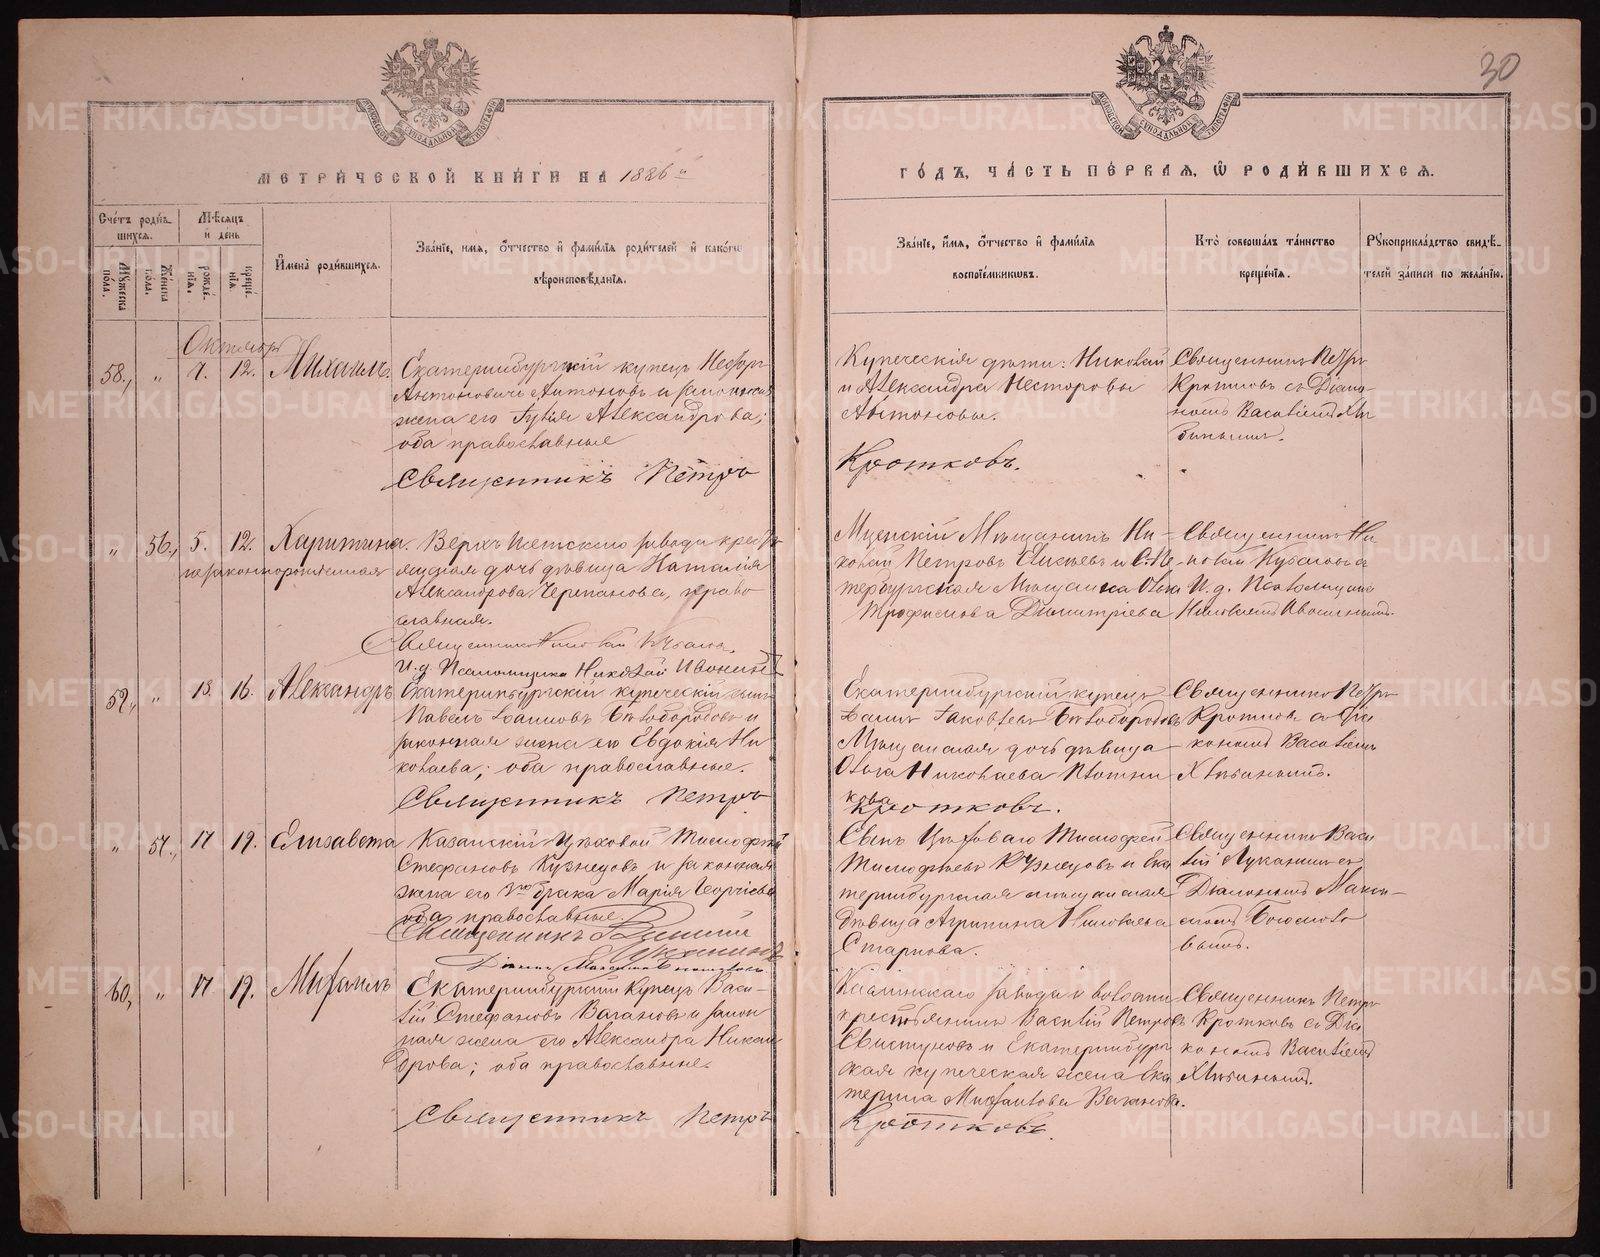 30
МОСКОВСКОЙ СѴНОДАЛЬНОЙ ТИПОГРАФІИ
МОСКОВСКОЙ СѴНОДАЛЬНОЙ ТИПОГРАФІИ
МЕТРИ́ЧЕСКОЙ КНИ́ГИ НА 1886 й
ГО́ДЪ, ЧА́СТЬ ПЕ́РВАЯ, Ѡ РОДИ́ВШИХСЯ.
Сче́тъ роди́в-
шихся.
Мѣ́сяцъ
и҆ день
Му́жеска
пола.
Же́нска
пола.
рожде́-
нїя.
креще́-
нїя.
И҆мена̀ роди́вшихся.
Зва́нїе, и҆мя, ѻ҆́тчество и҆ фами́лїя роди́телей и҆ како́гѡ
вѣроисповѣ́данїя.
Зва́нїе, и҆́мя, ѻ҆́тчество и҆ фами́лїя
воспрїе́мникѡвъ.
Кто̀ соверша́лъ та́инство
креще́нїя.
Рꙋкоприкла́дство свидѣ́-
телей за́писи по жела́нїю.
Октябрь
58., " 7. 12. Михаилъ.
Екатеринбургскій купецъ Несторъ
Антоновичъ Антоновъ и законная
жена его Александрова;
оба православные
Священникъ Петръ
Купеческія дѣти: Николай
и Александра Несторовы
Антоновы.
Кротковъ.
Священникъ Петръ
Кротковъ съ Діако-
номъ Василіемъ Хлѣ
бинымъ.
" 56., 5. 12. Харитина.
незаконнорожденная
Верхъ Исетскаго завода крестья
янская дочь дѣвица Наталія
Александрова Черепанова, право
славная.
Священникъ Николай
И. д. Псаломщика Николай Ивонинъ
Мценскій Мѣщанинъ Ни-
колай Петровъ Елисѣевъ и С.Пе-
тербургская Мѣщанка Ольга
Трофимова Димитріева
Священникъ Ни
колай
И. д. Псаломщика
Николаемъ Ивонинымъ.
59., " 13. 16. Александръ
Екатеринбургскій купеческій сынъ
Павелъ Іоанновъ Бѣлобородовъ и
законная жена его Евдокія Ни
колаева; оба православные.
Священникъ Петръ
Екатеринбургскій купецъ
Іоаннъ Іаковлевъ Бѣлобородовъ
Мѣщанская дочь дѣвица
Ольга Николаева Плотни
кова
Кротковъ.
Священникъ Петръ
Кротковъ съ Діа
кономъ Василіемъ
Хлѣбинымъ.
" 57., 17 19. Елисавета
Казанскій Цѣховой Тимофей
Стефановъ Кузнецовъ и законная
жена его брака Марія Георгіева
оба православные.
Священникъ Василій
Луканинъ
Діаконъ Максимъ
Сынъ Цѣховаго Тимофей
Тимофѣевъ Кузнецовъ и Ека
теринбургская мѣщанская
дѣвица Агрипина Николаева
Старкова.
Священникъ Васи
лій Луканинъ съ
Діакономъ Макси-
момъ Богослов
вымъ.
60, " 17 19. Михаилъ
Екатеринбургскій Купецъ Васи-
лій Стефановъ Вагановъ и закон
ная жена его Александра Никан
дрова; оба православные.
Священникъ Петръ
завода и волости
крестьянинъ Василій Петровъ
Свистуновъ и Екатеринбург
ская купеческая жена Ека
терина Михаилова Ваганова.
Кротковъ.
Священникъ Петръ
Кротковъ съ Діа
кономъ Василіемъ
Хлѣбинымъ.